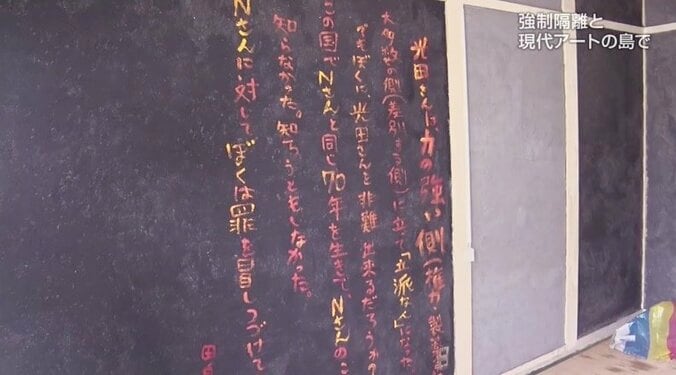 強制隔離と
現代アートの島で
光田さんは、力の強い側(権力
大多数の側(差別する側)に立って「立派な人」になった
でもぼくに、光田さんを非難出来るだろうか?
この国でNさんと同じ70年を生きて、Nさんのこ
知らなかった。知ろうともしなかった。
Nさんに対してぼくは罪を冒しつづけて
田